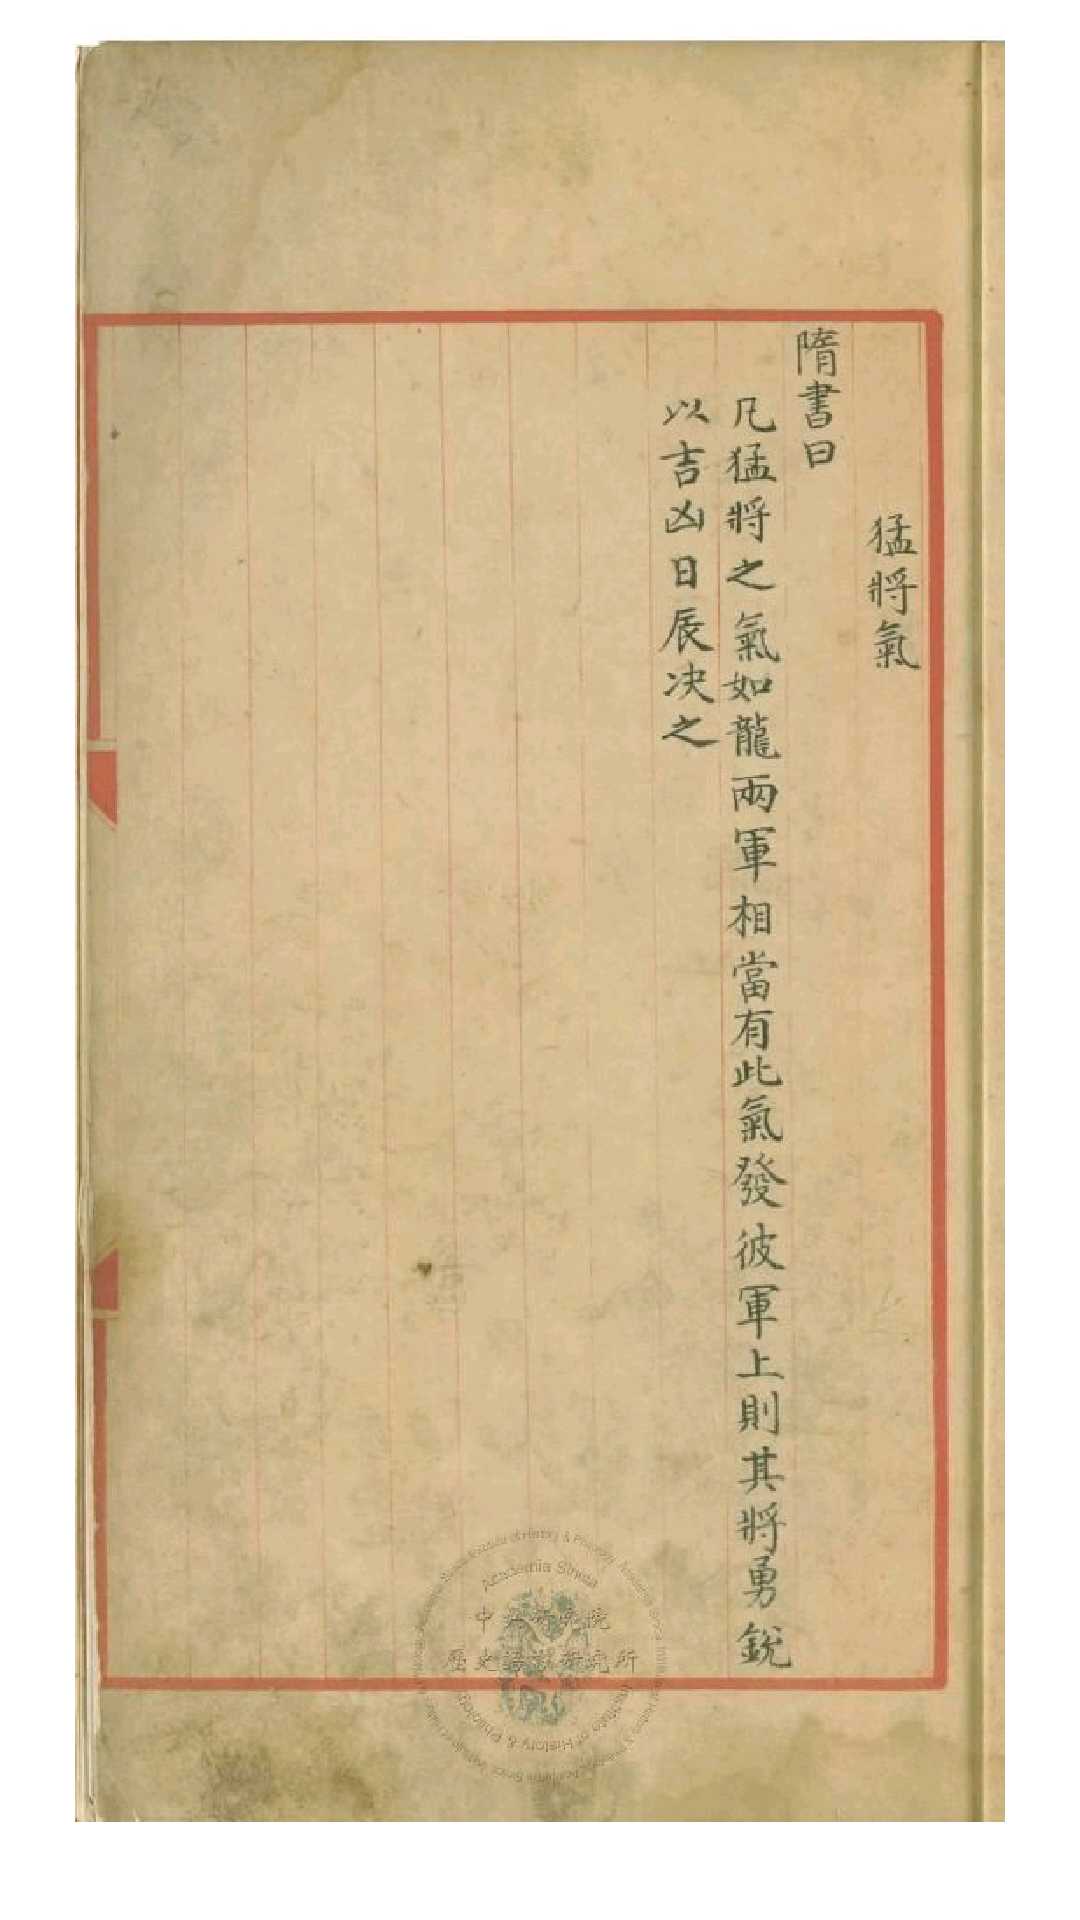 猛將氣
隋書曰
凡猛將之氣如龍兩軍相當有此氣發彼軍上則其將勇銳
以吉凶日辰决之
Academia Sinica
中央研究院
歷史語言研究所
Institute of History & Philology